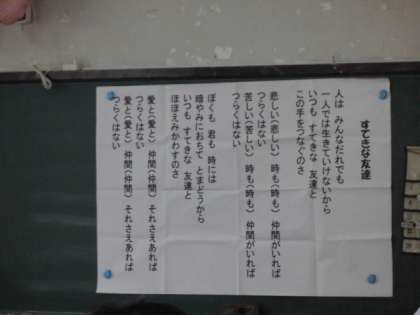 すてきな友達
人は みんなだれでも
一人では生きていけないから
いつも すてきな 友達と
この手をつなぐのさ
悲しい(悲しい) 時も(時も) 仲間がいれば
つらくはない
苦しい(苦しい) 時も(時も) 仲間がいれば
つらくはない
ぼくも 君も 時には
暗やみにおちて とまどうから
いつも すてきな 友達と
ほほえみかわすのさ
愛と(愛と) 仲間(仲間) それさえあれば
つらくはない
愛と(愛と) 仲間(仲間) それさえあれば
つらくはない